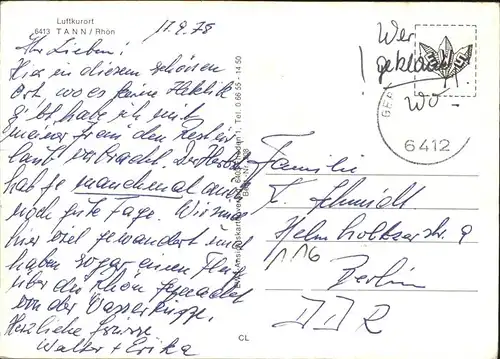 Luftkurort
6413 TANN / Rhön
17.9.78
Ihr Lieben!
Hier in diesem schönen
Ort, wo es keine Hektik
gibt habe ich mit
meiner Frau den Resturlaub
verbracht. Der Herbst
hat ja manchmal auch
noch gute Tage. Wir sind
hier viel gewandert und
haben sogar einen Flug
über die Rhön gemacht
von der Wasserkuppe.
Herzliche Grüsse
Walter + Erika
Tel. 0 66 55 - 14 50
CL
Wer
geklaut!
wo -
GER
6412
Familie
K. Schmidt
Helmholtzerstr. 9
116
Berlin
DDR